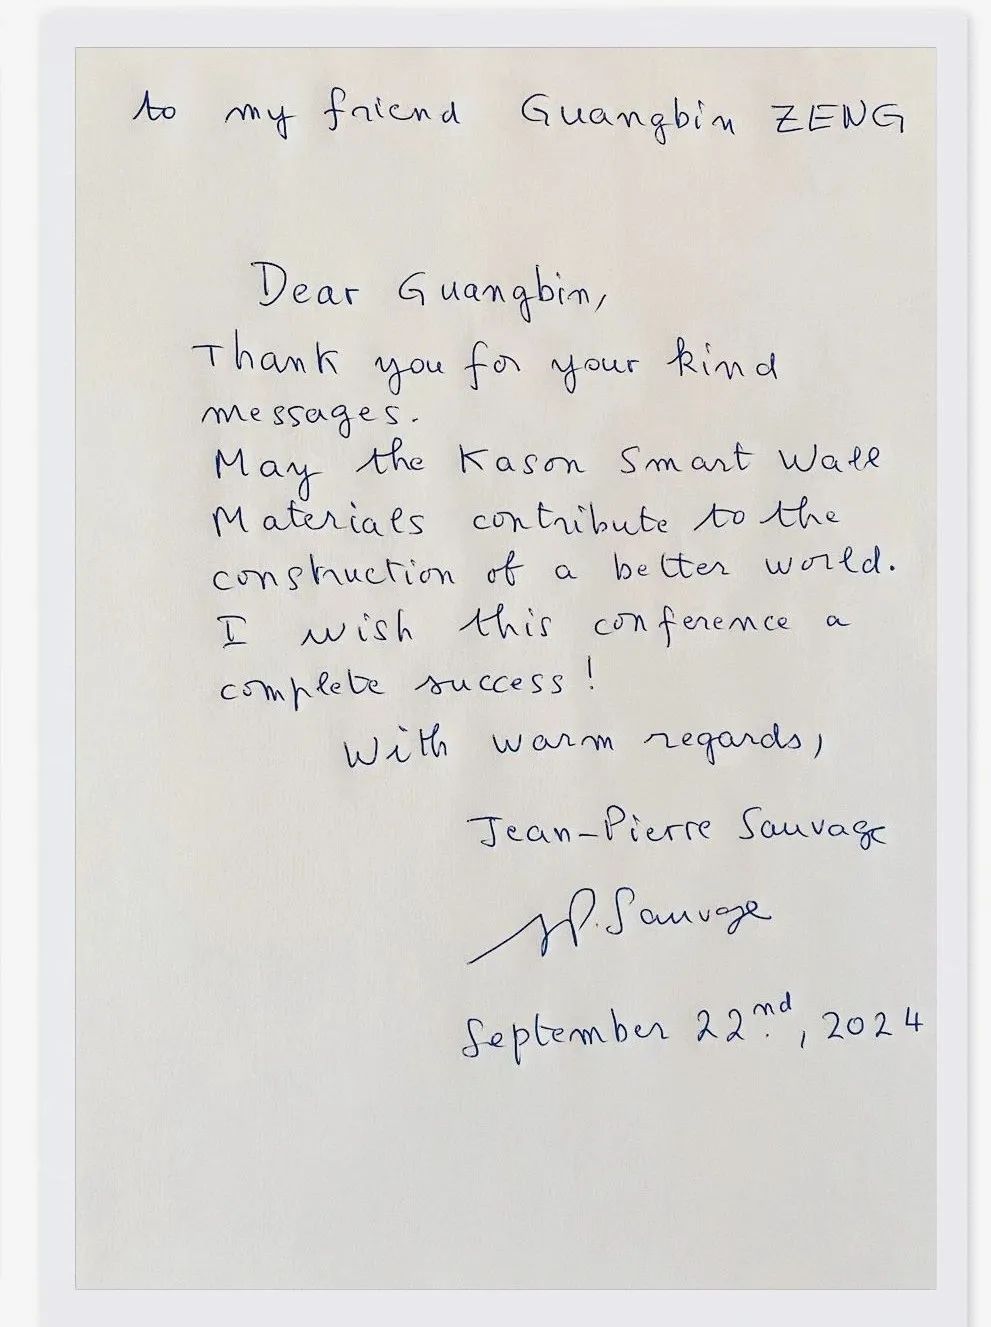 to my friend Guangbin ZENG
Dear Guangbin,
Thank you for your kind
messages.
May the Kason Smart Wall
Materials contribute to the
construction of a better world.
I wish this conference a
complete success !
With warm regards,
Jean-Pierre Sauvage
JP. Sauvage
September 22nd, 2024